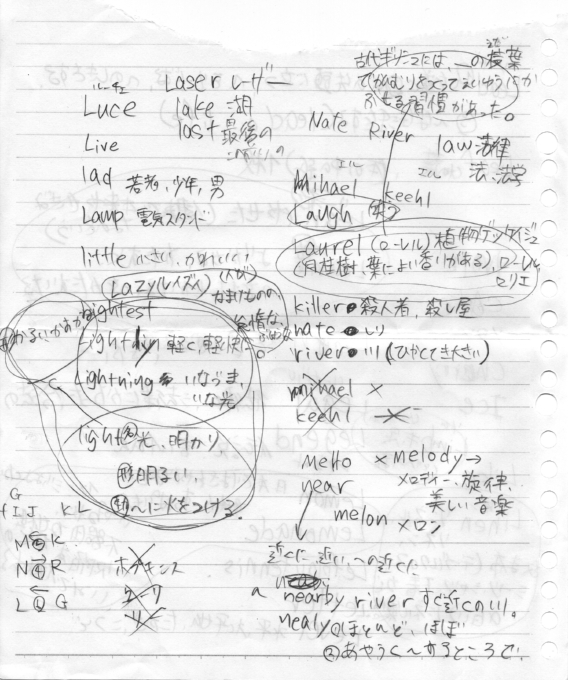 古代ギリシャには、この枝葉
でかんむりをつくってえいゆうにか
ぶせる習慣があった。
Laser レーザー
ルーチェ
Luce lake 湖
last 最後の
Nate River
Live
law 法律
エル 法、法学
lad 若者、少年、男
mihael エル keehl
Lamp 電気スタンド
Laugh 笑う
little 小さい、かわいい
Laurel (ローレル) 植物ゲッケイジュ
(月桂樹、葉によい香いがある)、ローレル
ロリエ
Lazy (レイズィ) (人が)
なまけものの
怠惰な、
killer 殺人者、殺し屋
nate
river 川 (ひかくてき大きい)
lightest
light 軽く、軽快に。
Lightning いなづま、
いな光
mihael ×
keehl
light 名 光、明かり
形 明るい
動 〜に火をつける。
Mello × melody →
メロディー、旋律、
美しい音楽
near
melon メロン
近くに 近い、〜の近くに
a nearby river すぐ近くの川。
nealy ①ほとんど、ほぼ
②あやうく〜するところで
G
f I J K L
M K
N R
L G